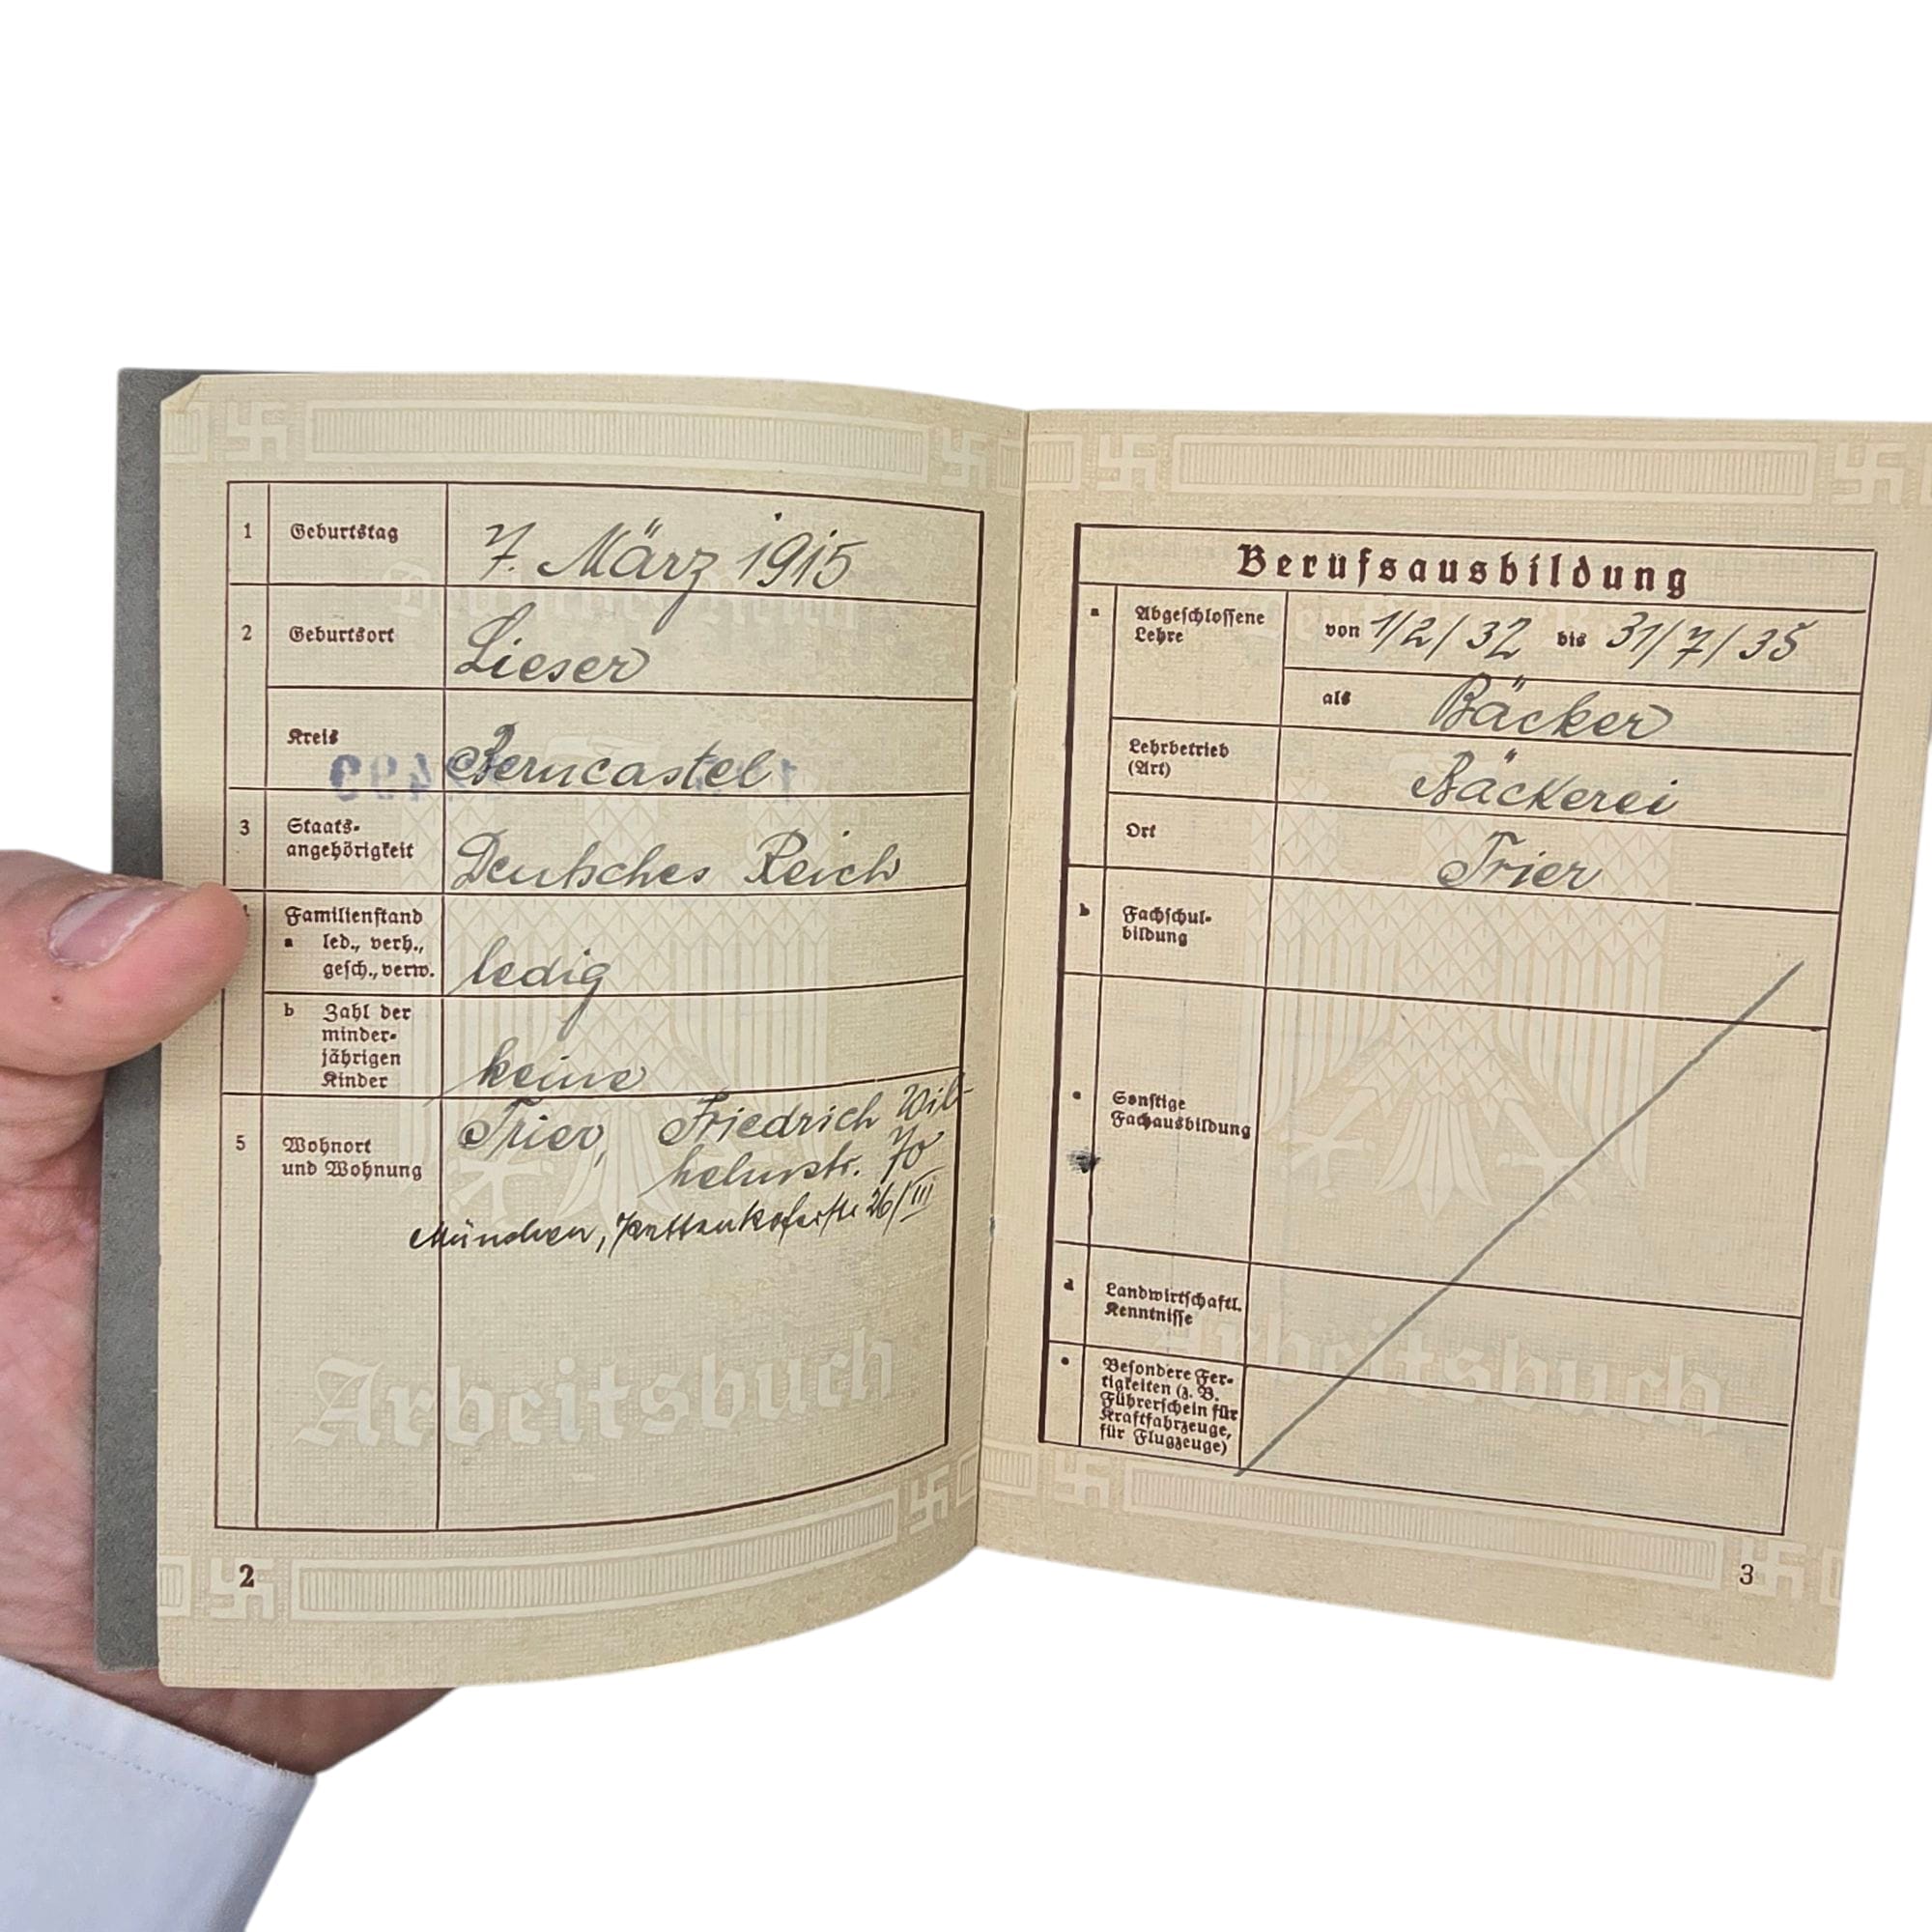 1 Geburtstag 7. März 1915
2 Geburtsort Lieser
Kreis Berncastel
3 Staats-
angehörigkeit Deutsches Reich
Familienstand
a led., verh.,
gesch., verw. ledig
b Zahl der
minder-
jährigen
Kinder keine
5 Wohnort
und Wohnung
Trier, Friedrich Wil-
helmstr. 70
München, Pettenkoferstr 26/III
Arbeitsbuch
2
Berufsausbildung
a Abgeschlossene
Lehre
von 1/2/32 bis 31/7/35
als Bäcker
Lehrbetrieb
(Art) Bäckerei
Ort Trier
b Fachschul-
bildung
c Sonstige
Fachausbildung
d Landwirtschaftl.
Kenntnisse
e Besondere Fer-
tigkeiten (z. B.
Führerschein für
Kraftfahrzeuge,
für Flugzeuge)
Arbeitsbuch
3